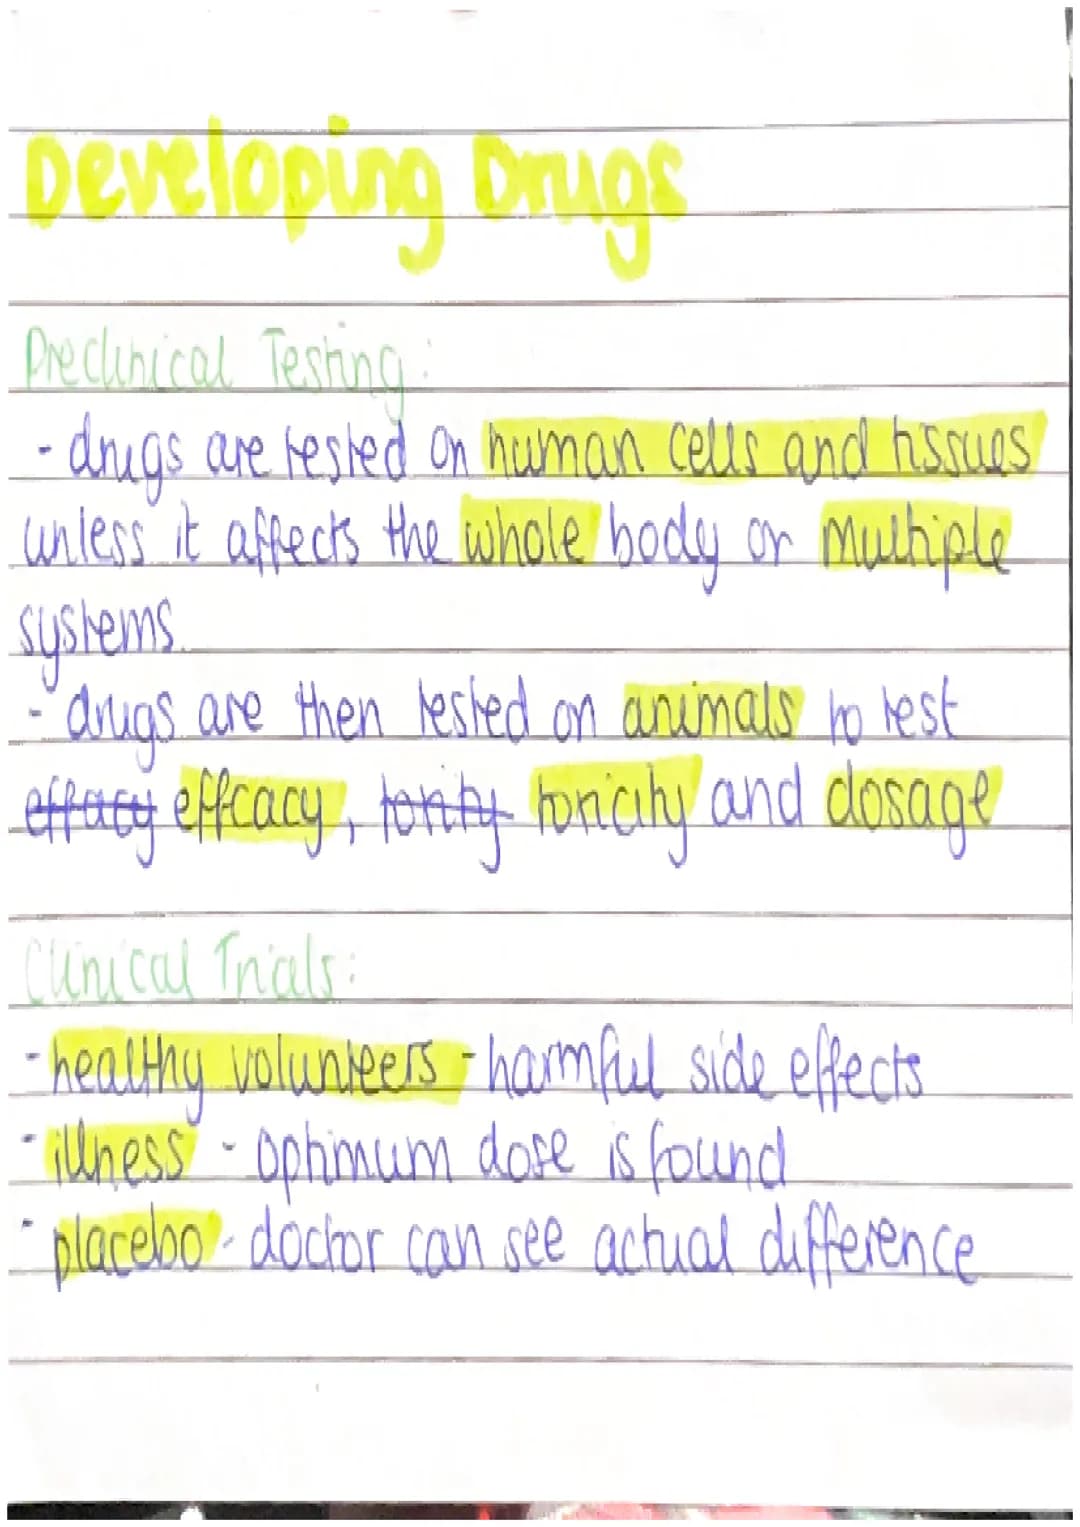 Developing Drugs
Preclinical Testing:
- drugs are tested on human cells and tissues
unless it affects the whole body or multiple
systems.
- drugs are then tested on animals to test
effacy effcacy, toxity toxicity and dosage
Clinical Trials:
- healthy volunteers - harmful side effects
- illness - optimum dose is found
- placebo - doctor can see actual difference